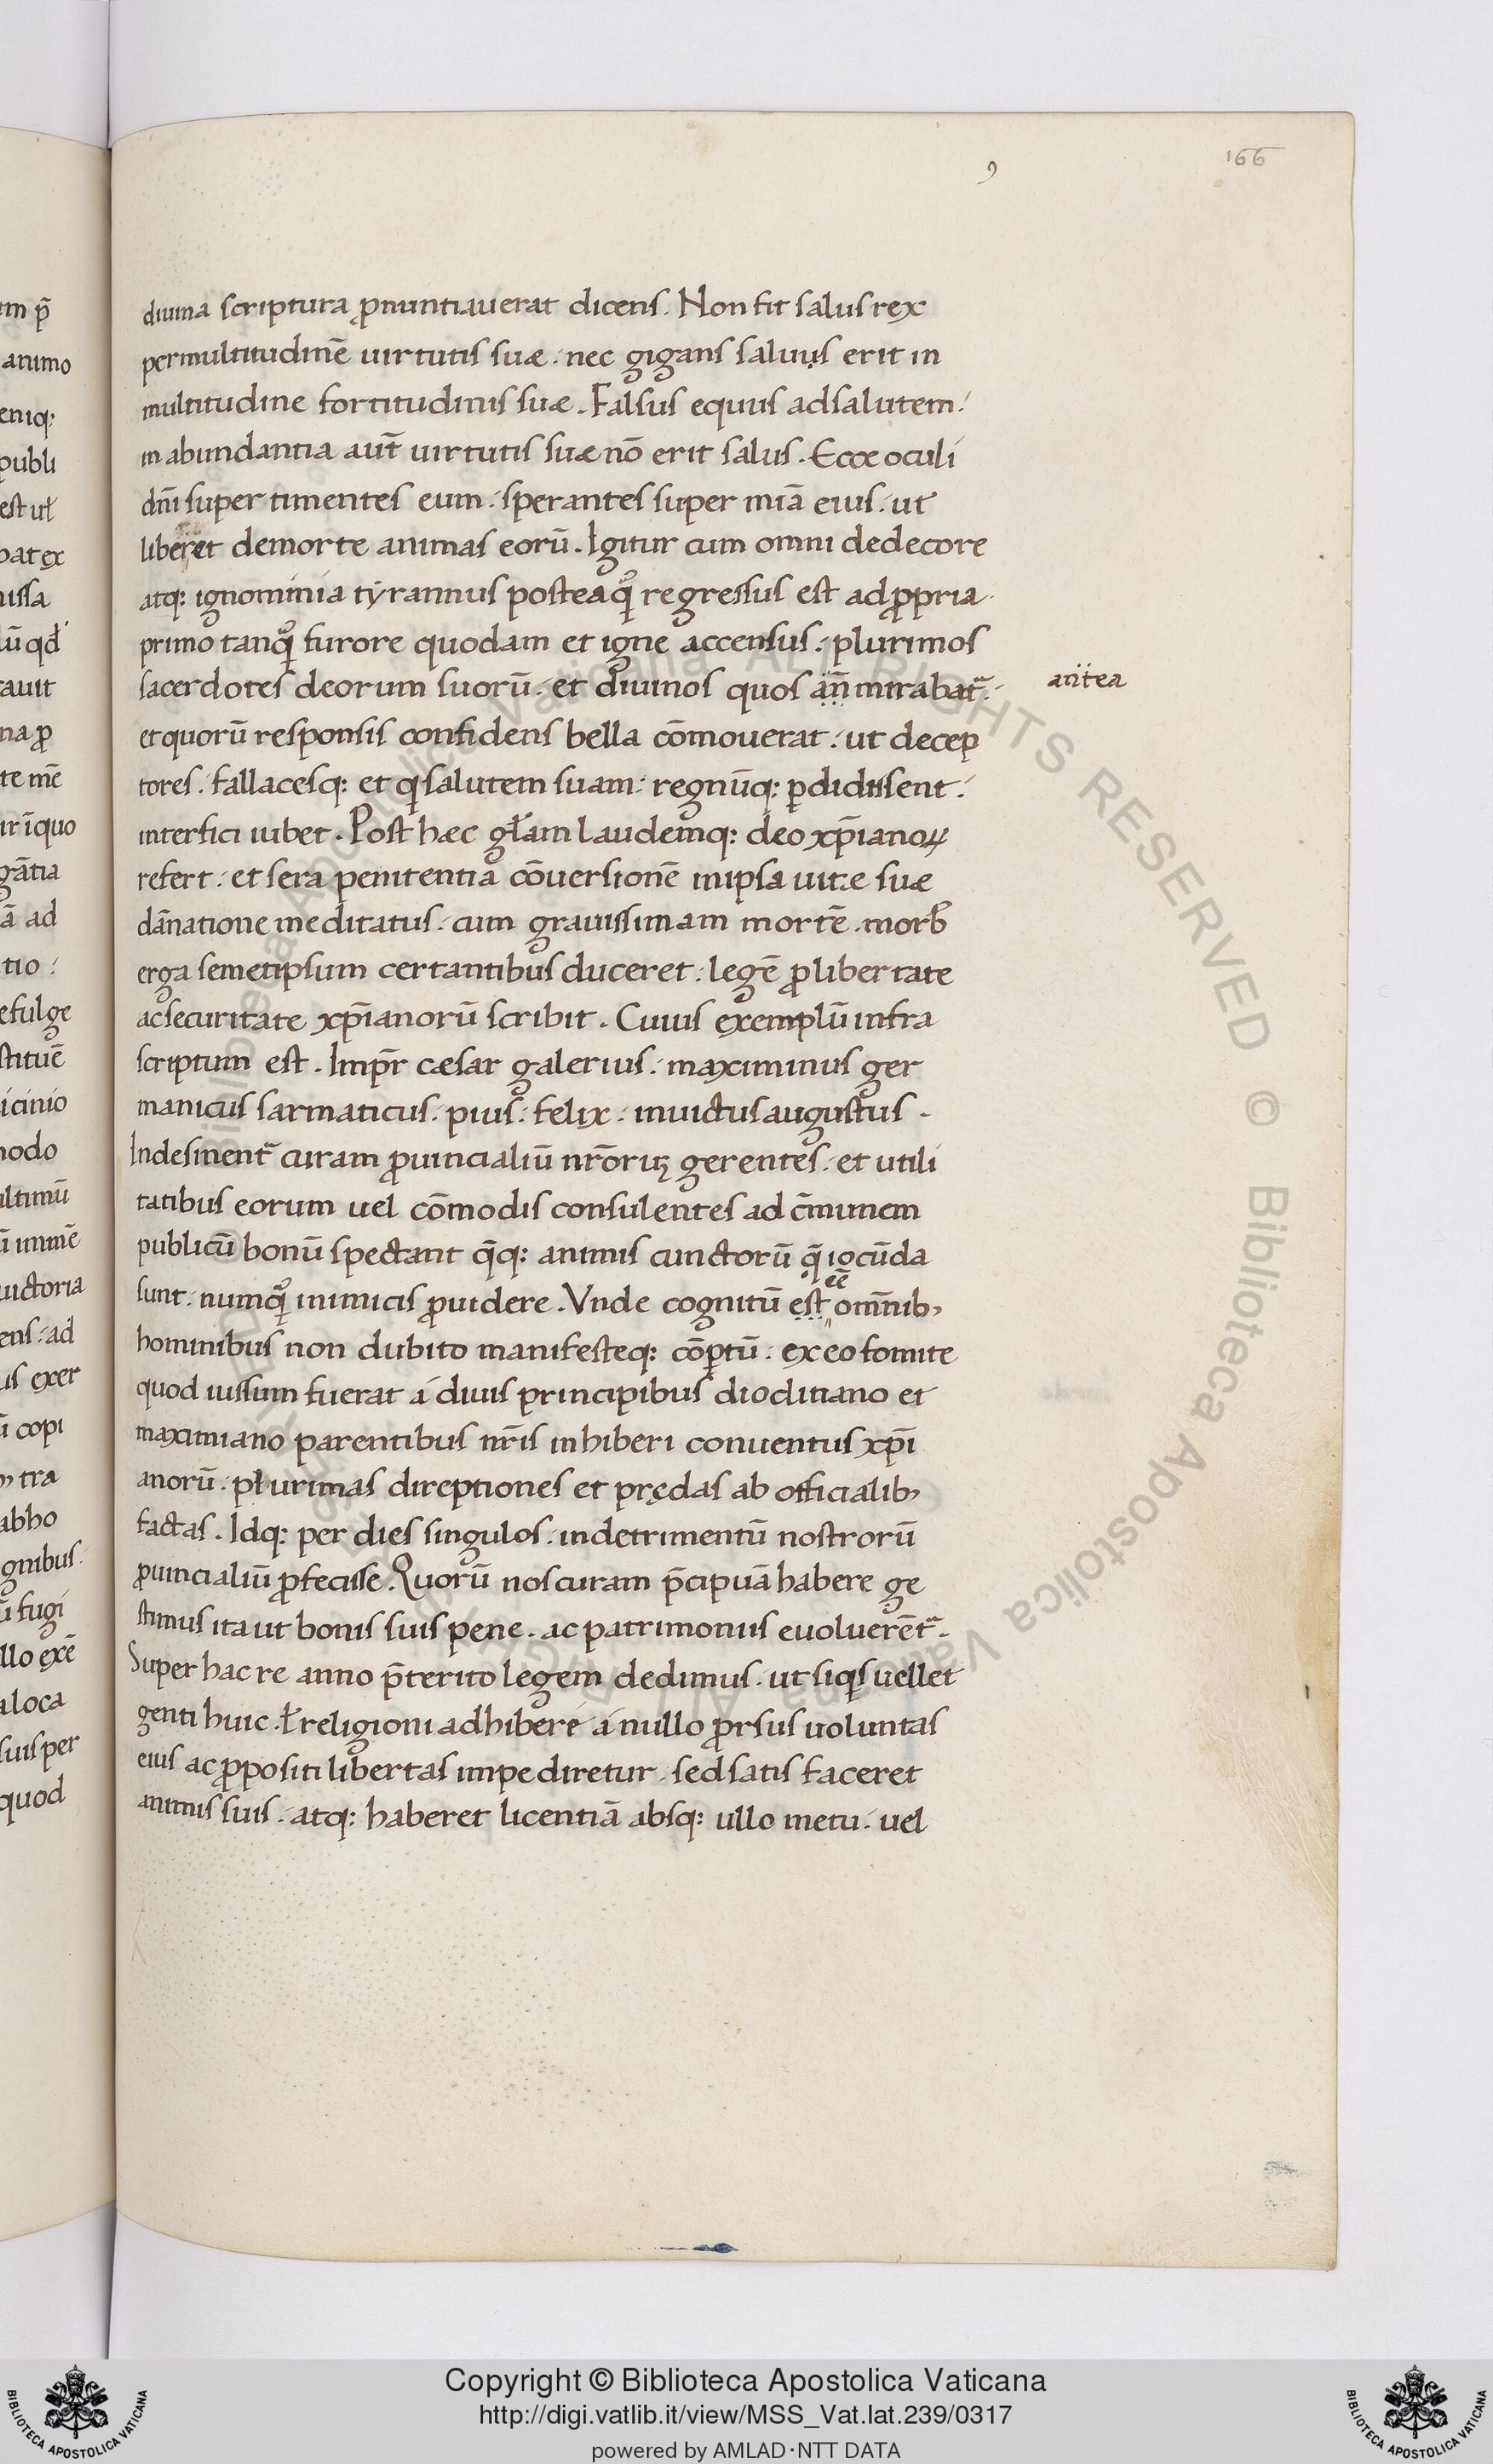 166
diuina scriptura ꝓnuntiauerat dicens. Non fit saluus rex
permultitudinē uirtutis suæ. nec gigans saluus erit in
multitudine fortitudinis suæ. Falsus equus adsalutem.
in abundantia aut̄ uirtutis suæ nō erit salus. Ecce oculi
dn̄i super timentes eum. sperantes super miā eius. ut
liberet demorte animas eorū. Igitur cum omni dedecore
atq: ignominia tyrannus posteaqͦ regressus est ad ꝓpria.
primo tanqͦ furore quodam et igne accensus. plurimos
sacerdotes deorum suorū. et diuinos quos an̄ mirabat᷑.
antea
et quorū responsis confidens bella cōmouerat. ut decep
tores. fallacesq: et qi salutem suam. regnūq: ꝑdidissent.
interfici iubet. Post hæc gƚam laudemq: deo xp̄ianoꝝ
refert. et sera penitentia cōuersionē inipsa uitæ suæ
dānatione meditatus. cum grauissimam mortē. morb᷒
erga semetipsum certantibus duceret. legē ꝓlibertate
acsecuritate xp̄ianorū scribit. Cuius exemplū infra
scriptum est. Imp̄r cæsar galerius. maximinus ger
manicus sarmaticus. pius. felix. inuictus augustus.
Indesinent᷑ curam ꝓuincialiū nr̄oruꝫ gerentes. et utili
tatibus eorum uel cōmodis consulentes ad c̄munem
publicū bonū spectant q̄q: animis cunctorū q̄ iocūda
sunt. numqͦ inimicis ꝓuidere. Vnde cognitū est ēē omnib᷒
hominibus non dubito manifesteq: cōꝑtū. ex eo fomite
quod iussum fuerat á diuis principibus dioclitiano et
maximiano parentibus nr̄is inhiberi conuentus xp̄i
anorū. plurimas direptiones et prędas ab officialib᷒
factas. Idq: per dies singulos. indetrimentū nostrorū
ꝓuincialiū ꝓfecisse. Quorū nos curam p̄cipuā habere ge
stimus ita ut bonis suis pene. ac patrimoniis euoluerēt᷑.
Super hac re anno p̄terito legem dedimus. ut siqis uellet
genti huic. ƚ religioni adhibere á nullo ꝓrsus uoluntas
eius ac ꝓpositi libertas impediretur. sed satis faceret
animis suis. atq: haberet licentiā absq: ullo metu. uel
Copyright © Biblioteca Apostolica Vaticana
http://digi.vatlib.it/view/MSS_Vat.lat.239/0317
powered by AMLAD·NTT DATA